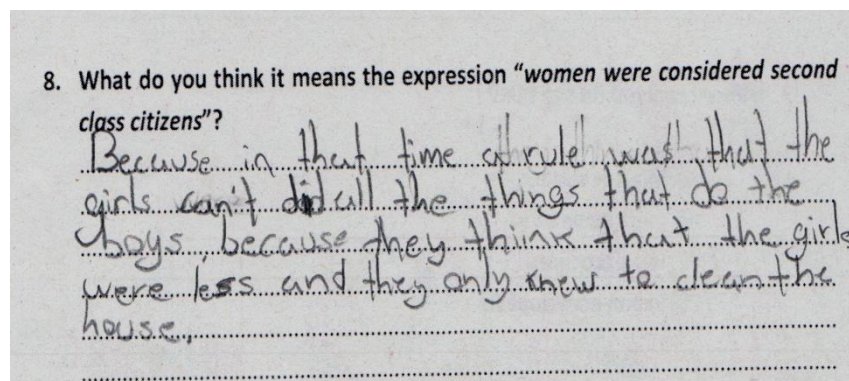 8. What do you think it means the expression "women were considered second
class citizens"?
Because in that time a rule was that the
girls can't did all the things that do the
boys, because they think that the girls
were less and they only knew to clean the
house.